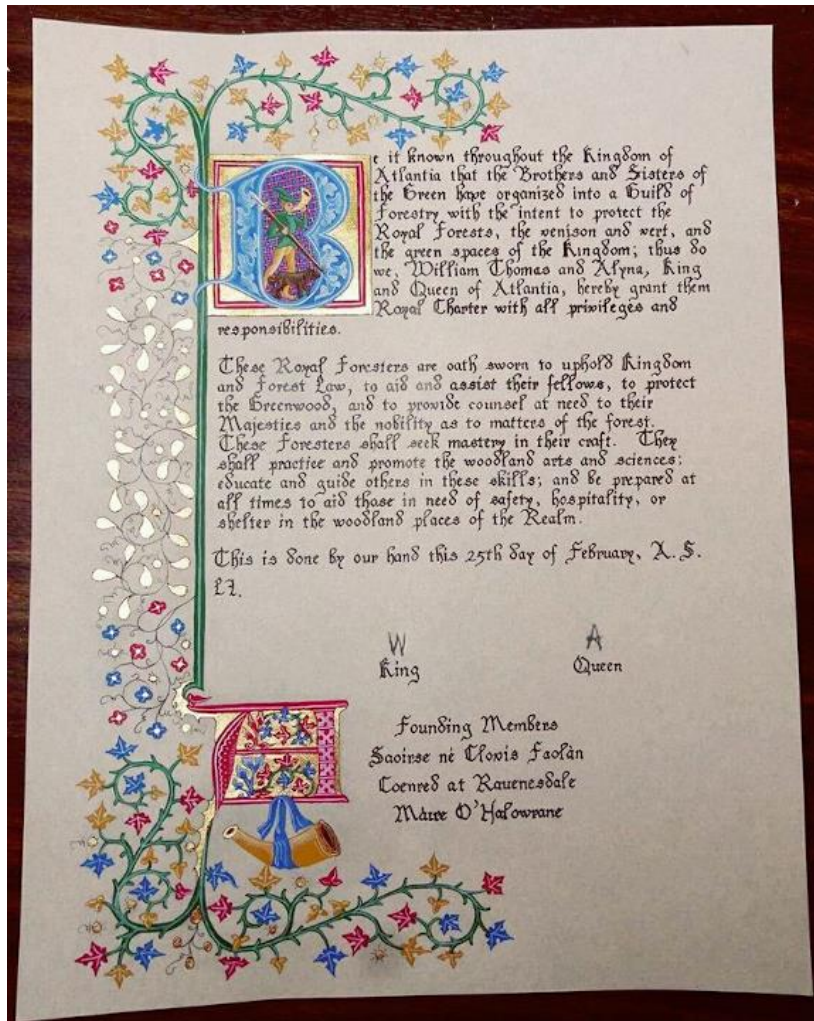 Be it known throughout the Kingdom of
Atlantia that the Brothers and Sisters of
the Green have organized into a Guild of
Forestry with the intent to protect the
Royal Forests, the venison and vert, and
the green spaces of the Kingdom; thus do
we, William Thomas and Alyna, King
and Queen of Atlantia, hereby grant them
Royal Charter with all privileges and
responsibilities.
These Royal Foresters are oath sworn to uphold Kingdom
and Forest Law, to aid and assist their fellows, to protect
the Greenwood, and to provide counsel at need to their
Majesties and the nobility as to matters of the forest.
These Foresters shall seek mastery in their craft. They
shall practice and promote the woodland arts and sciences;
educate and guide others in these skills; and be prepared at
all times to aid those in need of safety, hospitality, or
shelter in the woodland places of the Realm.
This is done by our hand this 25th day of February, A. S.
LI.
W A
King Queen
Founding Members
Saoirse né Clovis Faolàn
Coenred æt Rauenesdale
Máire O'Halowrane